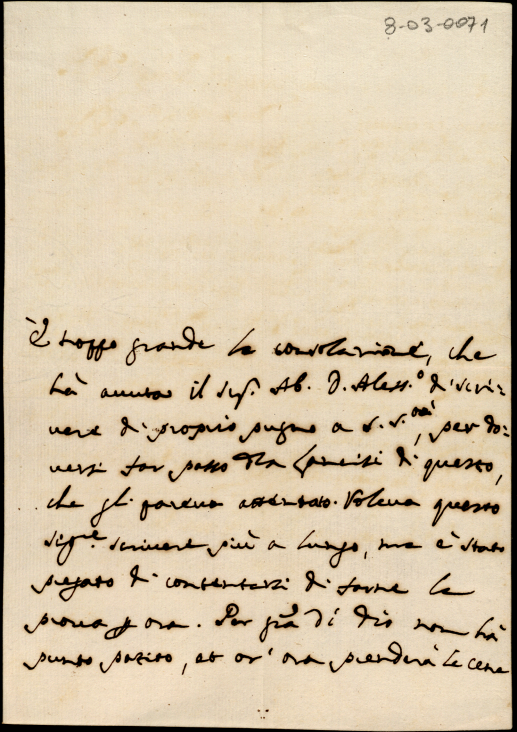 8-03-0071
È troppo grande la consolazione, che
hà avuta il Sigr. Ab. D. Aless.º di scri-
vere di proprio pugno a S. S., per do-
versi far passo di questo,
che gli pareva attentato. Voleva questo
Sigre. scrivere più a lungo, ma è stato
pregato di contentarsi di farne la
prova p ora. Per grã di Dio non hà
punto patito, et or' ora prenderà le cene